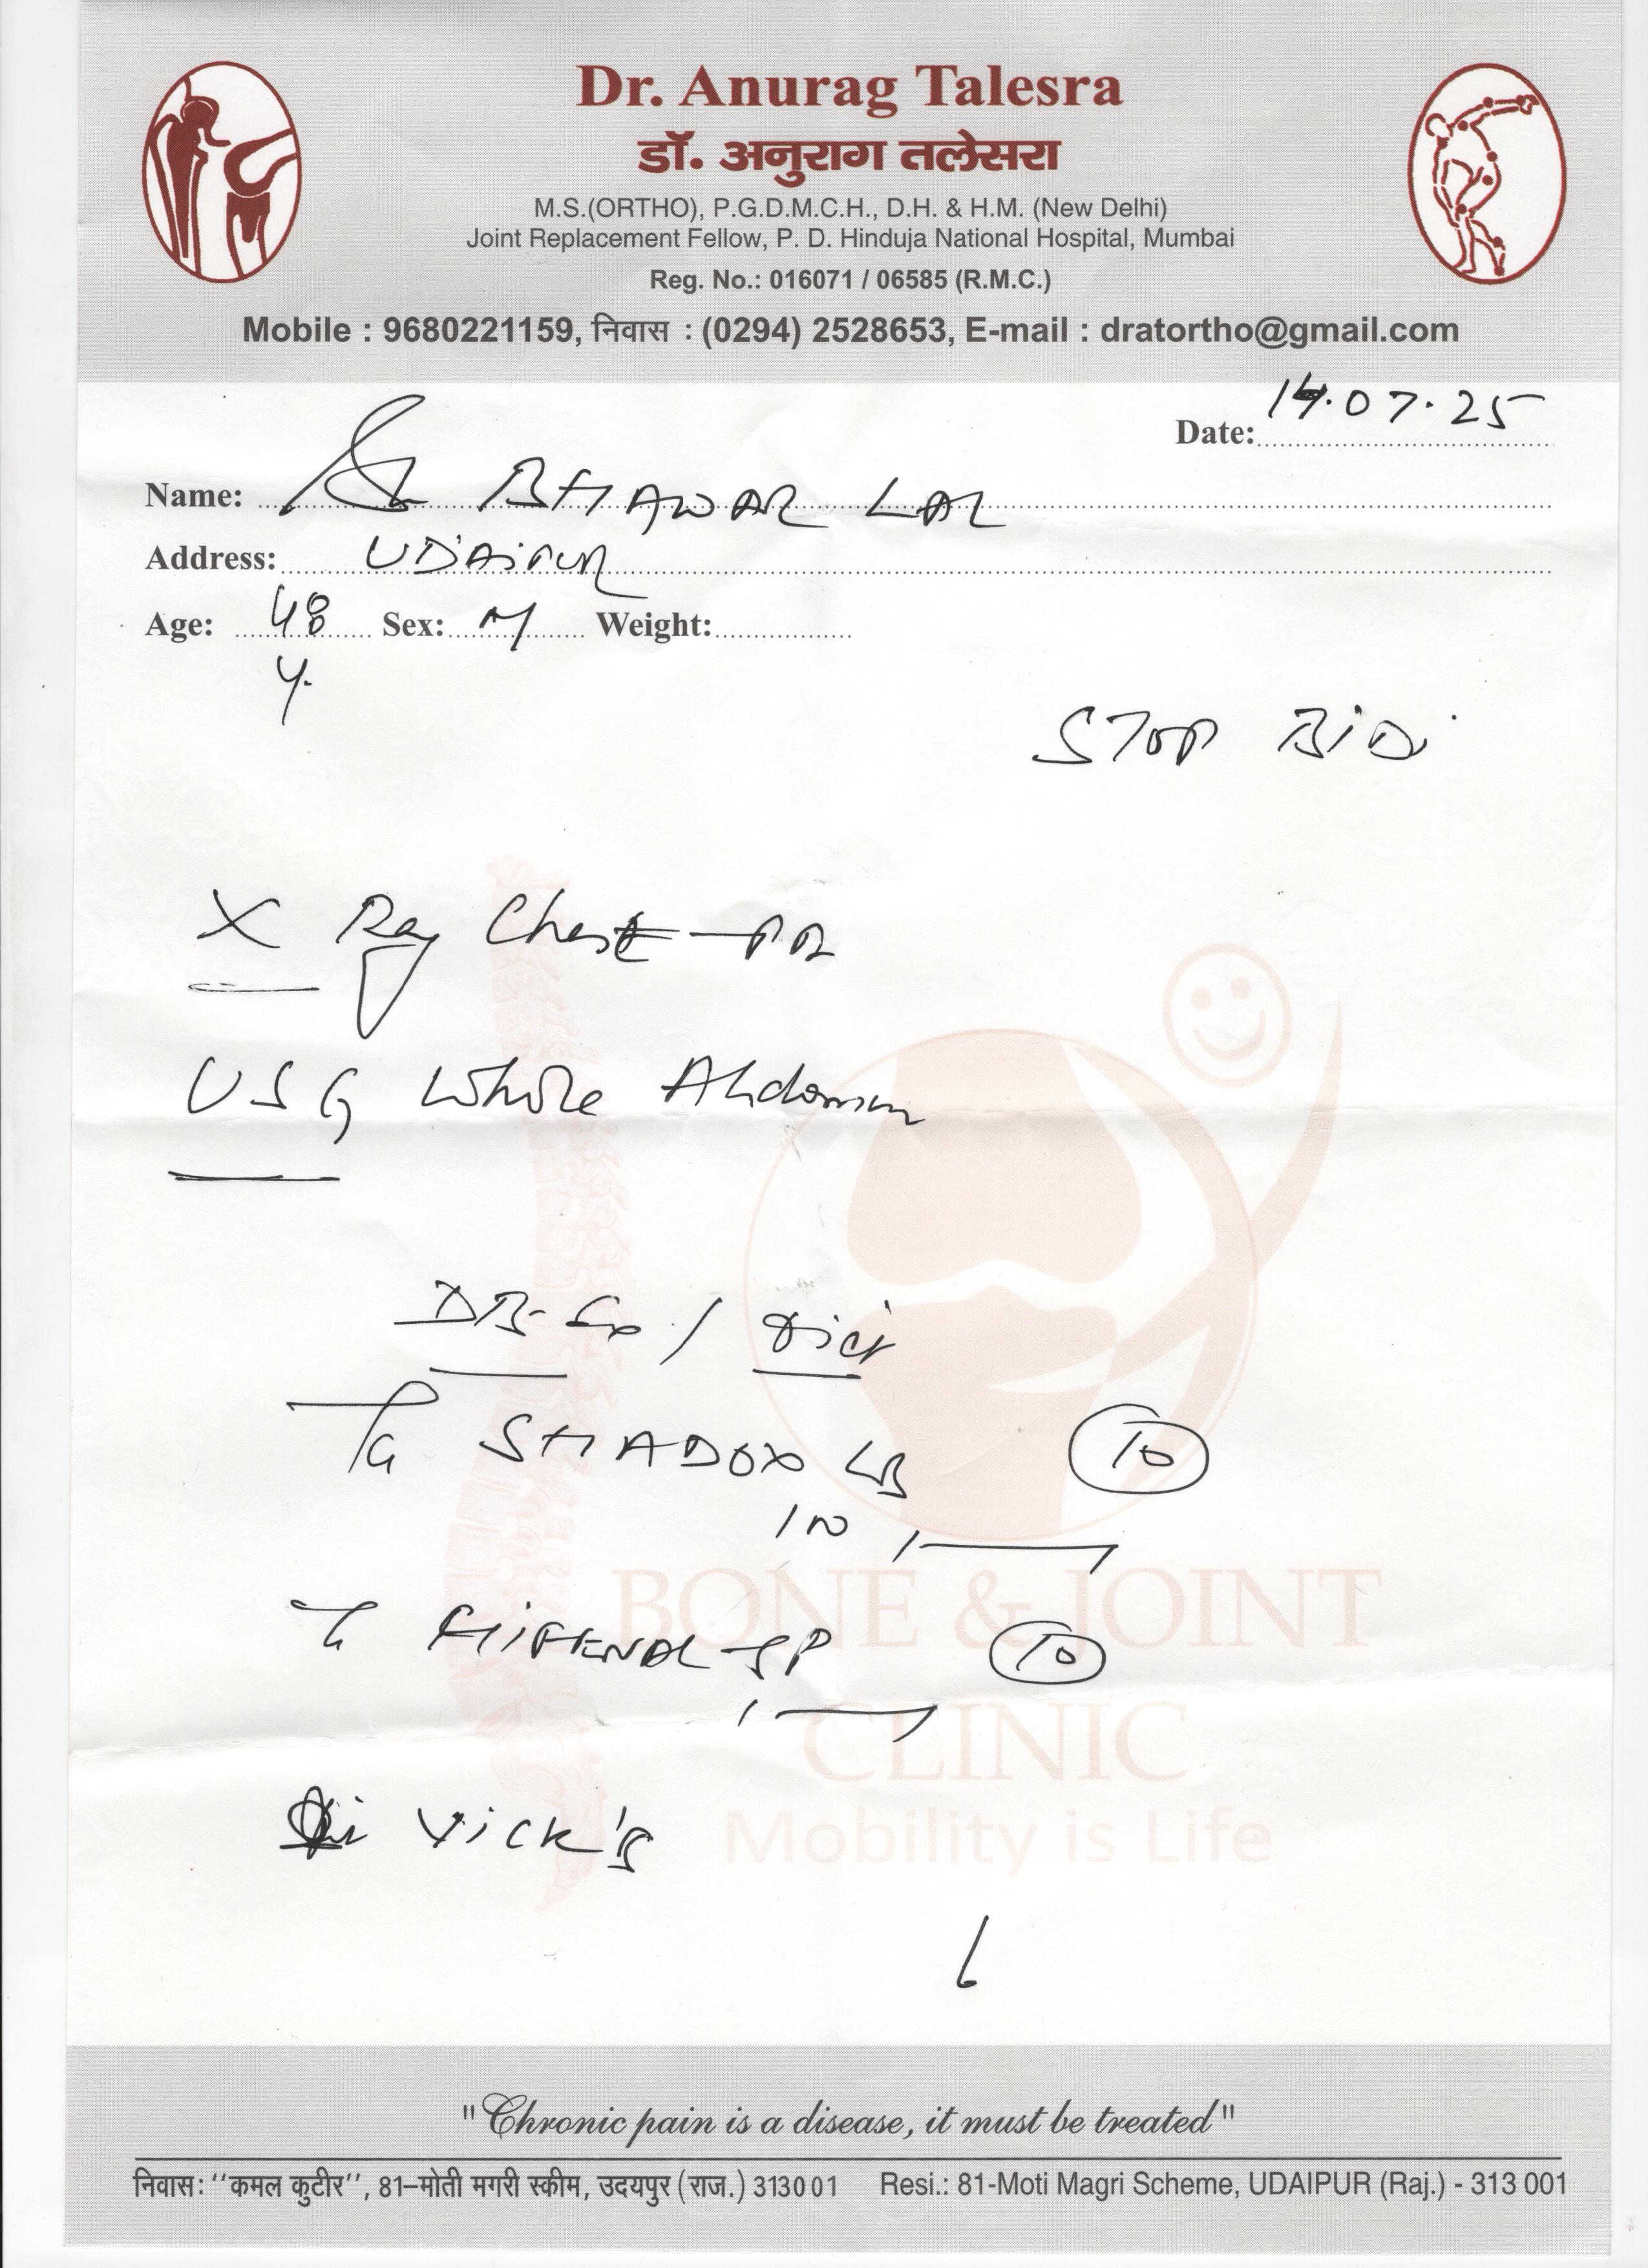 Dr. Anurag Talesra
डॉ. अनुराग तलेसरा
M.S.(ORTHO), P.G.D.M.C.H., D.H. & H.M. (New Delhi)
Joint Replacement Fellow, P. D. Hinduja National Hospital, Mumbai
Reg. No.: 016071 / 06585 (R.M.C.)
Mobile : 9680221159, निवास : (0294) 2528653, E-mail : dratortho@gmail.com
Date: 14.07.25
Name: BHAWAR LAL
Address: UDAIPUR
Age: 48 Sex: M Weight:
Y.
STOP BIDI
X Ray Chest - PA
USG Whole Abdomen
DB- Ex /
SHADOX LB 10
-SP 10
VICK'S
BONE & JOINT
CLINIC
Mobility is Life
"Chronic pain is a disease, it must be treated"
निवास: ''कमल कुटीर'', 81–मोती मगरी स्कीम, उदयपुर (राज.) 313001 Resi.: 81-Moti Magri Scheme, UDAIPUR (Raj.) - 313 001